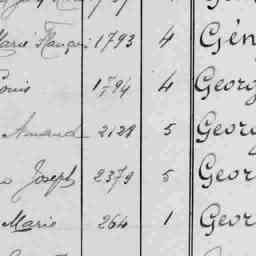 Marie François 1793 4 Gén
Louis 1794 4 Georg
Amand 2128 5 Georg
Joseph 2379 5 Geor
Marie 264 1 Geor